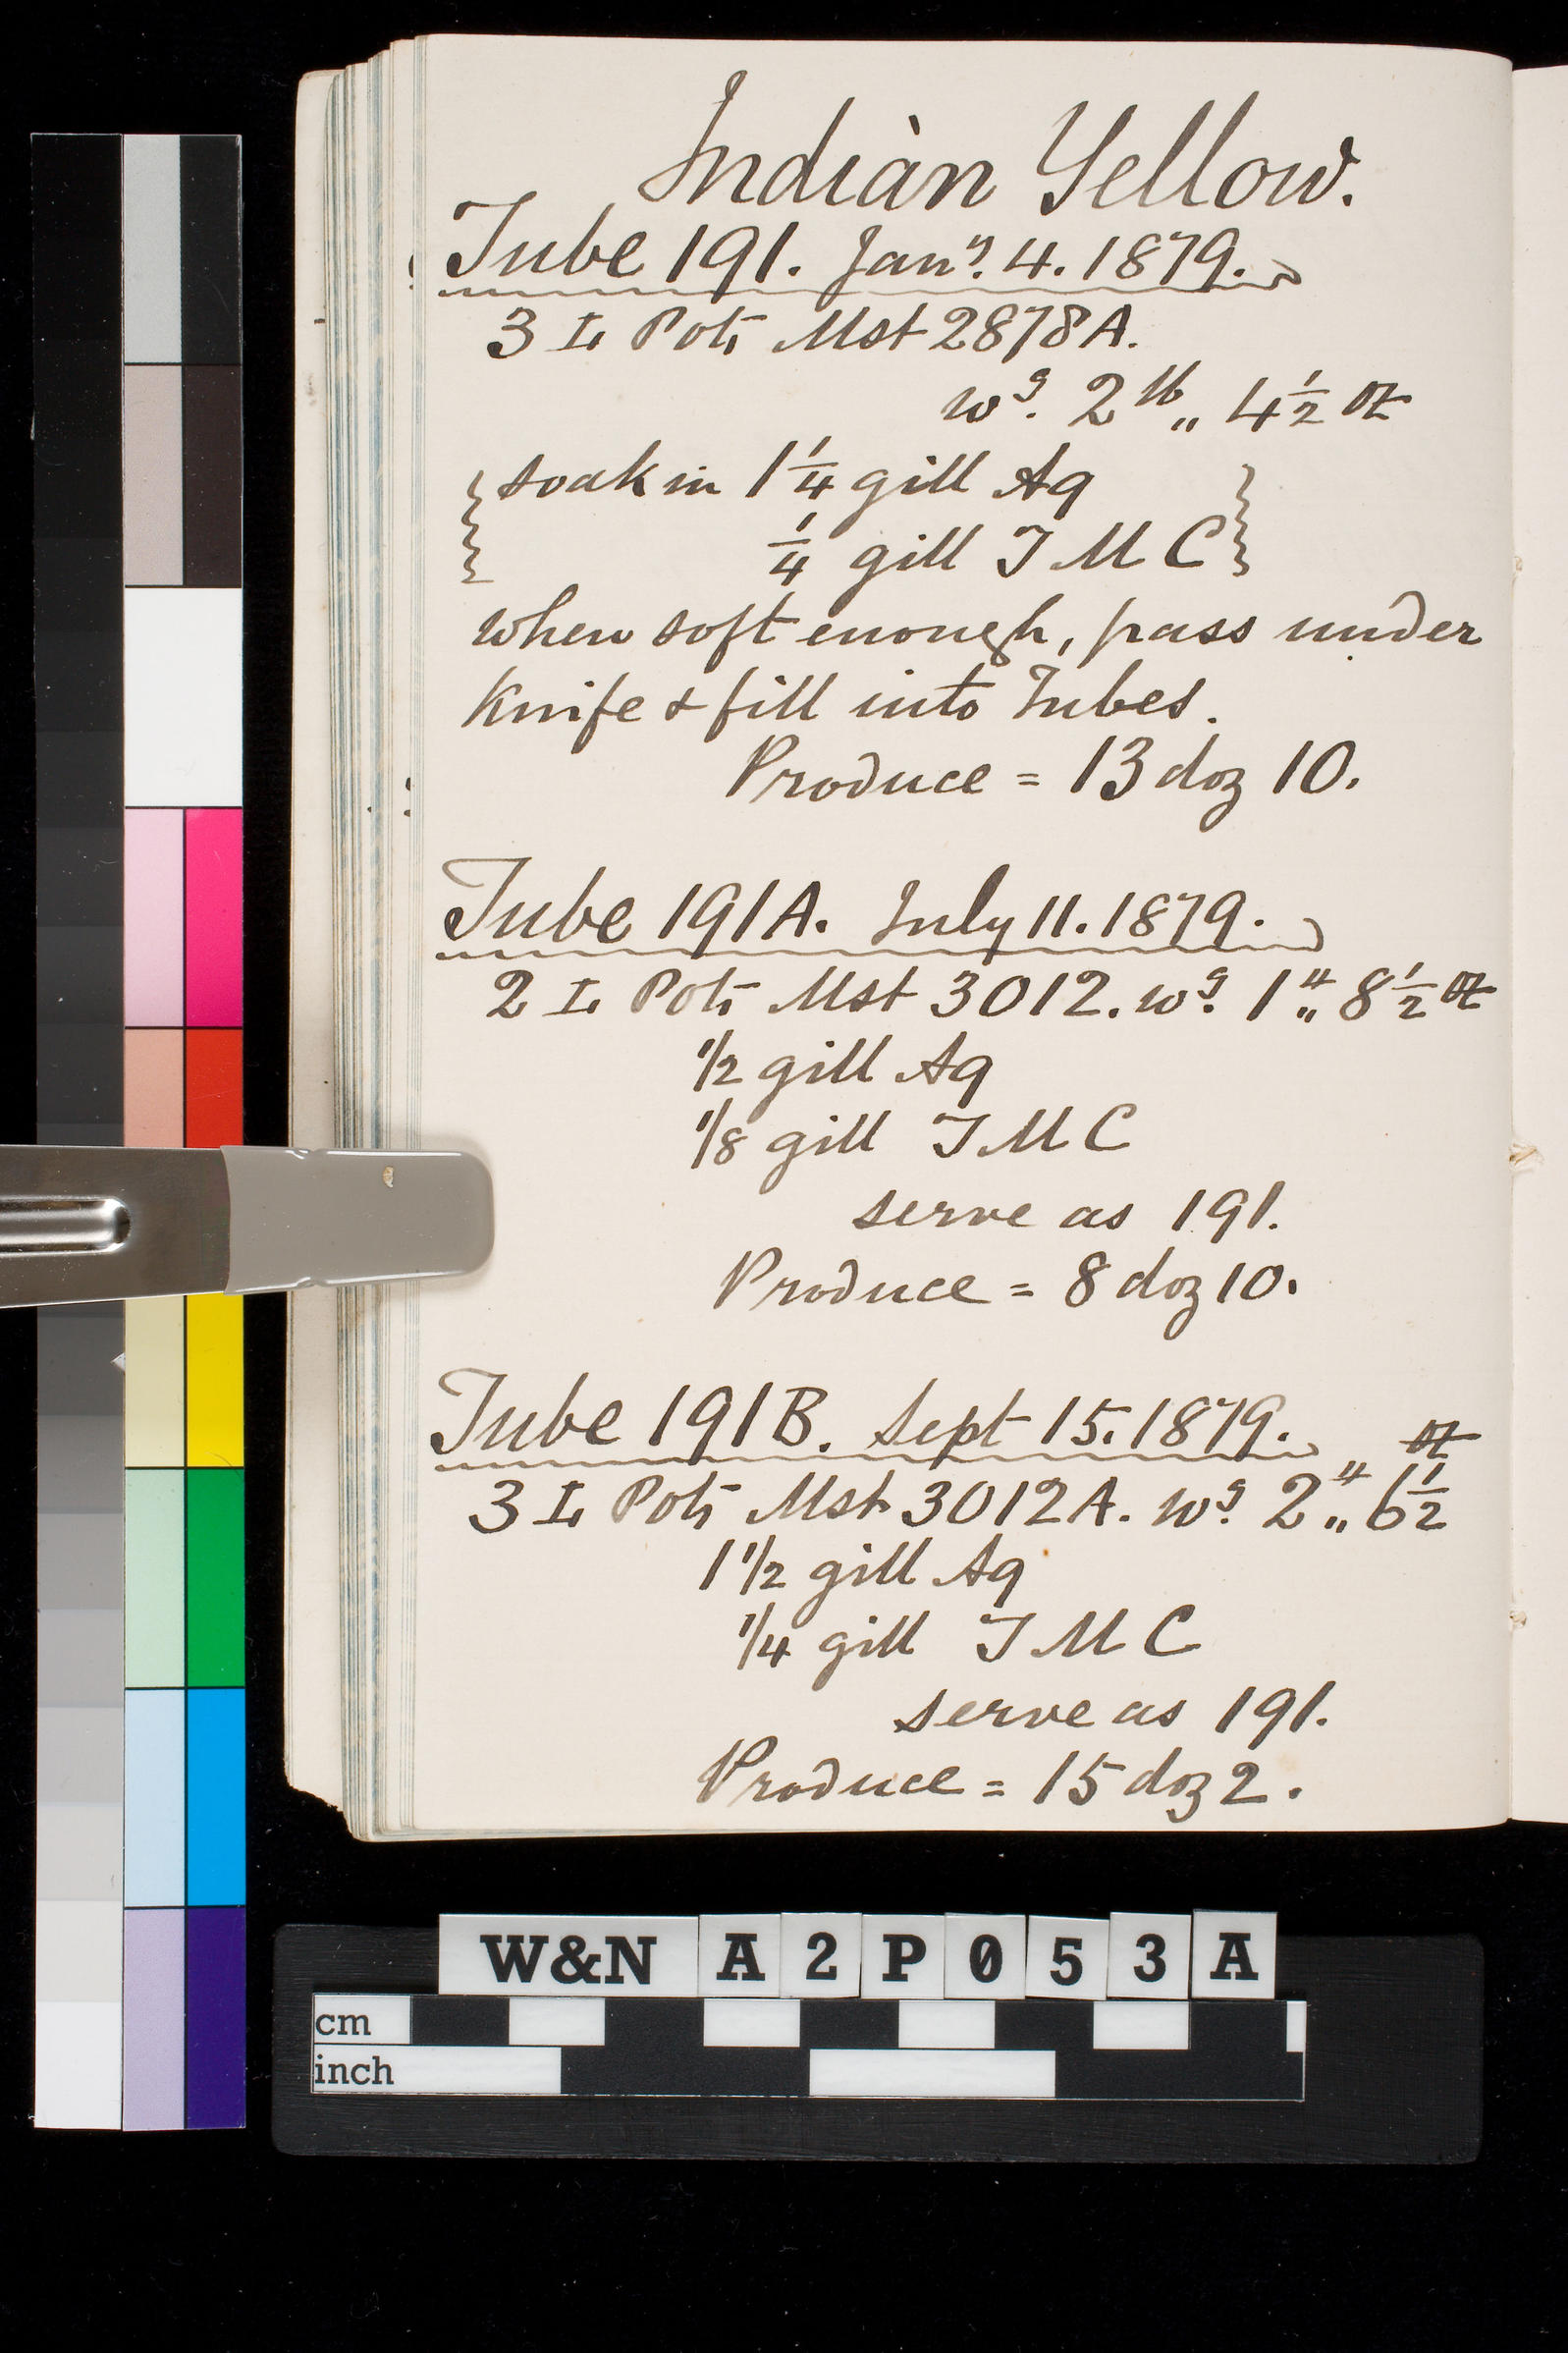 Indian Yellow.
Tube 191. Jany. 4. 1879.
3 L Pots Mst 2878A.
wg. 2 lb „ 4½ oz
soak in 1¼ gill Aq
¼ gill T M C
when soft enough, pass under
Knife & fill into Tubes.
Produce = 13 doz 10.
Tube 191A. July 11. 1879.
2 L Pots Mst 3012. wg. 1 lb „ 8½ oz
1/2 gill Aq
1/8 gill T M C
serve as 191.
Produce = 8 doz 10.
Tube 191B. Sept 15. 1879.
3 L Pots Mst 3012A. wg. 2 lb „ 6½ oz
1 1/2 gill Aq
1/4 gill T M C
serve as 191.
Produce = 15 doz 2.
W&N A2P053A
cm
inch